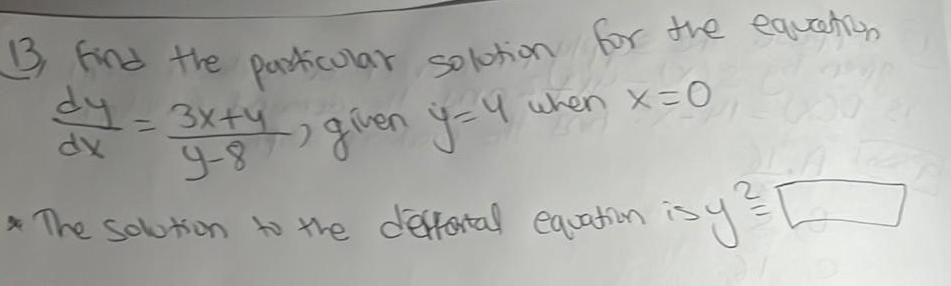 13, find the particular solution for the equation
dy/dx = 3x+4/y-8, given y=4 when x=0
* The solution to the deffortal equation is y² =